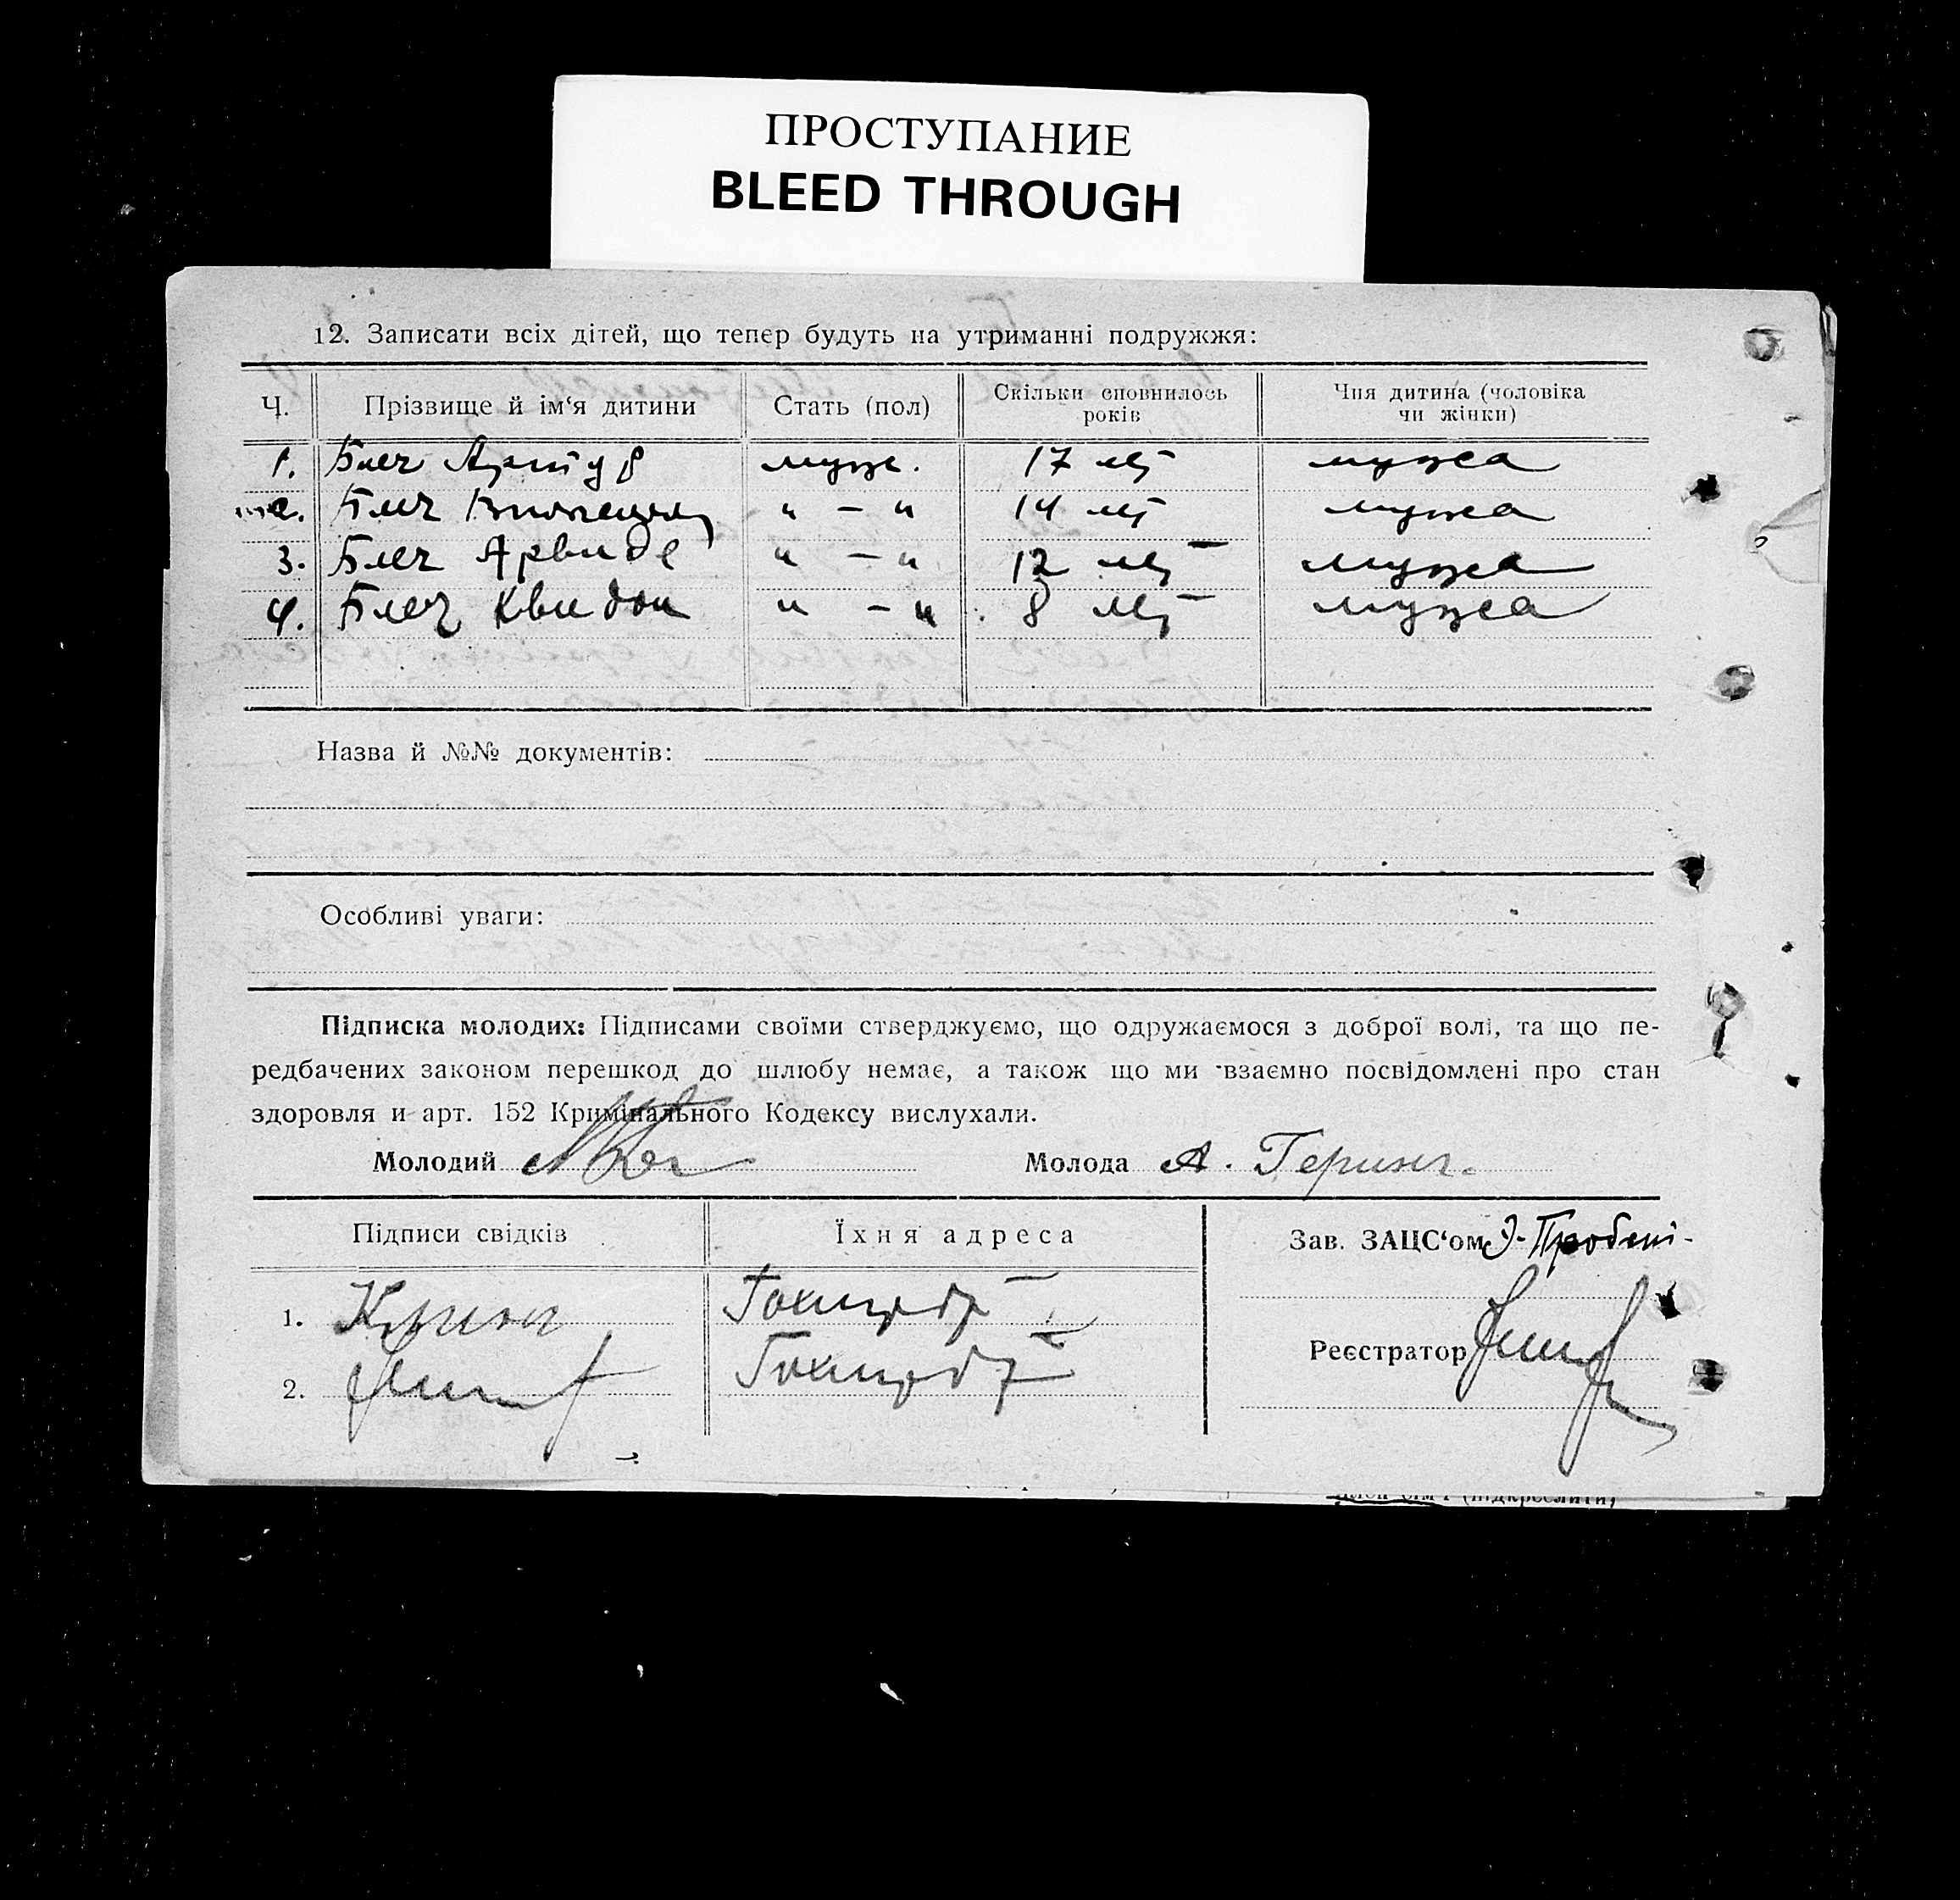 ПРОСТУПАНИЕ
BLEED THROUGH
12. Записати всіх дітей, що тепер будуть на утриманні подружжя:
Ч. Прізвище й ім‘я дитини Стать (пол) Скільки сповнилось років Чия дитина (чоловіка чи жінки)
1. Блез Артур муж. 17 лет мужа
2. Блез " — " 14 лет мужа
3. Блез Арвиде " — " 12 лет мужа
4. Блез Квидон " — " 8 лет мужа
Назва й №№ документів:
Особливі уваги:
Підписка молодих: Підписами своїми стверджуємо, що одружаємося з доброї волі, та що пе-
редбачених законом перешкод до шлюбу немає, а також що ми взаємно посвідомлені про стан
здоровля и арт. 152 Кримінального Кодексу вислухали.
Молодий Молода А. Геринг.
Підписи свідків Їхня адреса Зав. ЗАЦС‘ом
1.
Реєстратор
2.
(підкреслити)